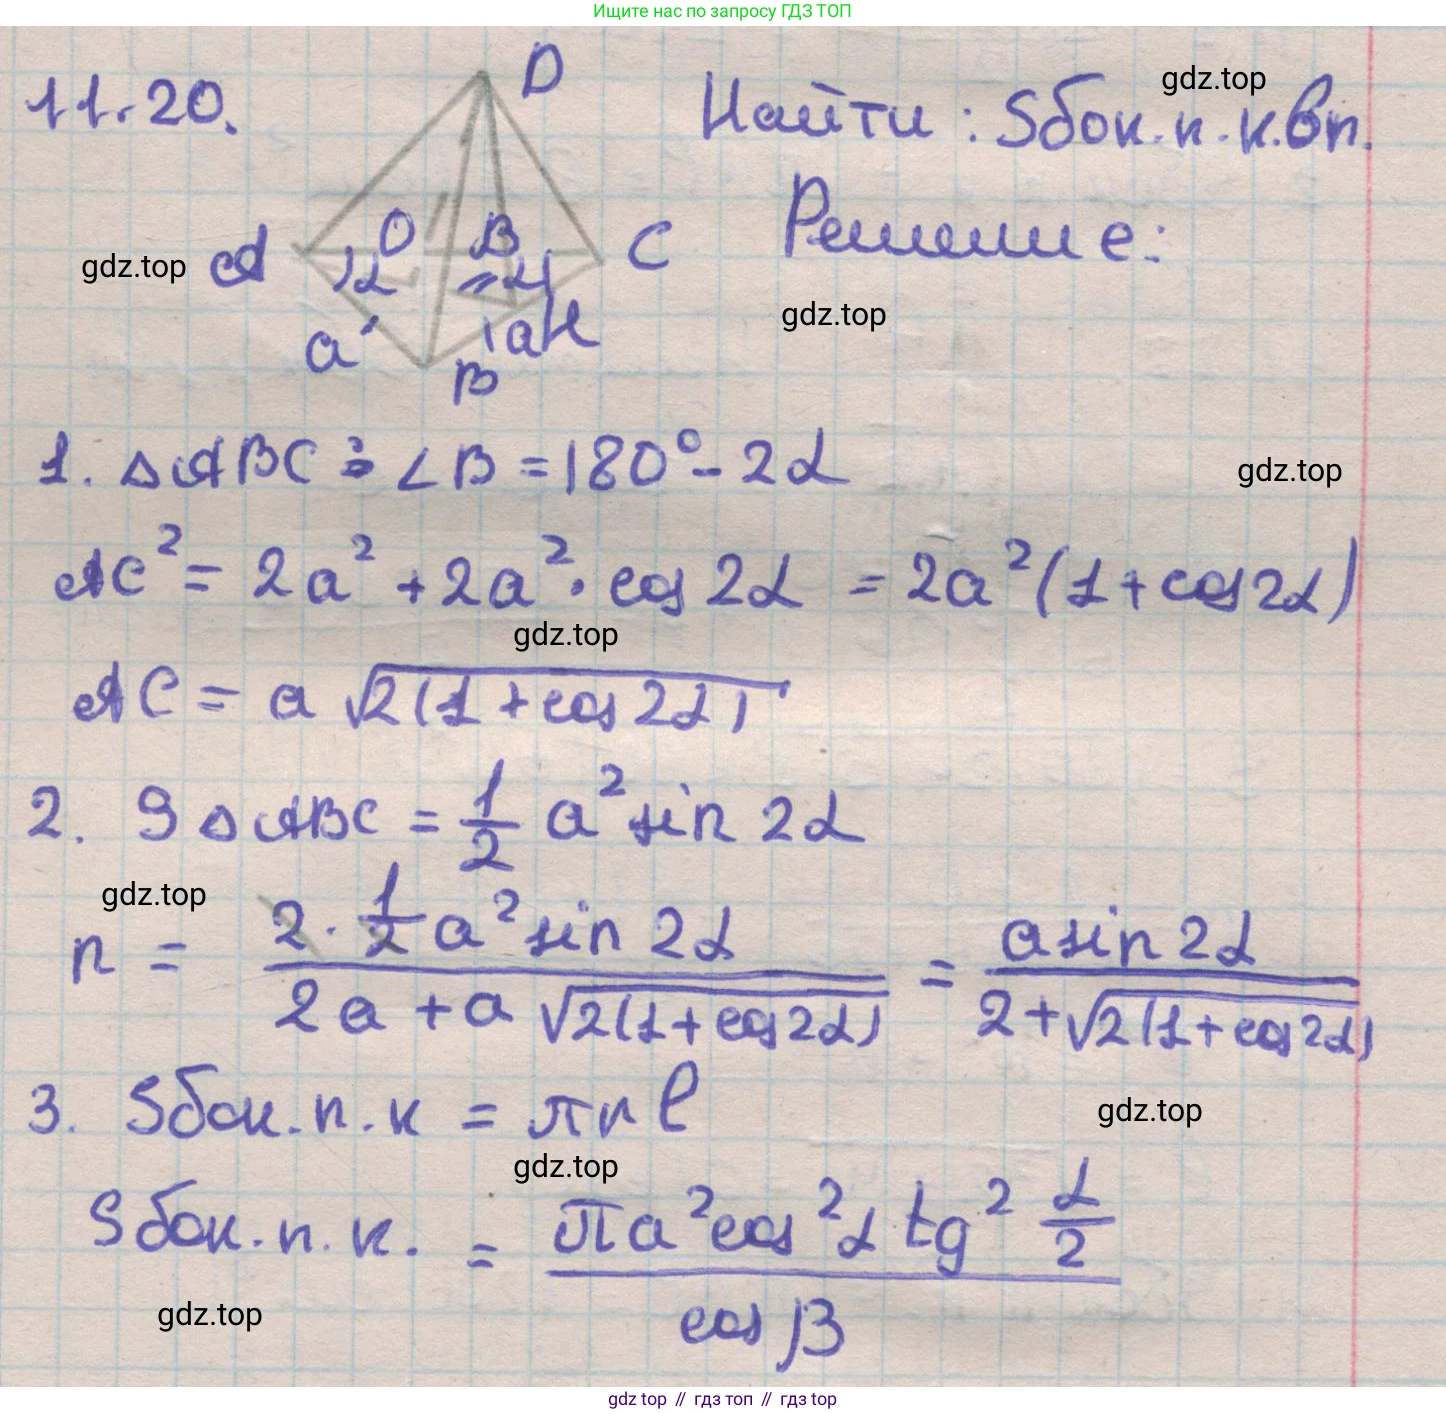 Ищите нас по запросу ГДЗ ТОП
11.20.
D
Найти: Sбок.п.к.вп.
gdz.top
Решение:
A
O
B
C
gdz.top
α
α
gdz.top
a
a
H
B
1. △ABC: ∠B = 180° - 2α
gdz.top
AC² = 2a² + 2a² · cos 2α = 2a²(1 + cos 2α)
gdz.top
AC = a √2(1 + cos 2α)
2. S △ABC = 1/2 a² sin 2α
gdz.top
r = (2 · 1/2 a² sin 2α)/(2a + a √2(1 + cos 2α)) = (a sin 2α)/(2 + √2(1 + cos 2α))
3. Sбок.п.к = πrl
gdz.top
gdz.top
Sбок.п.к. = (πa² cos² α tg² α/2)/(cos β)
gdz.top
gdz top // гдз топ // гдз top